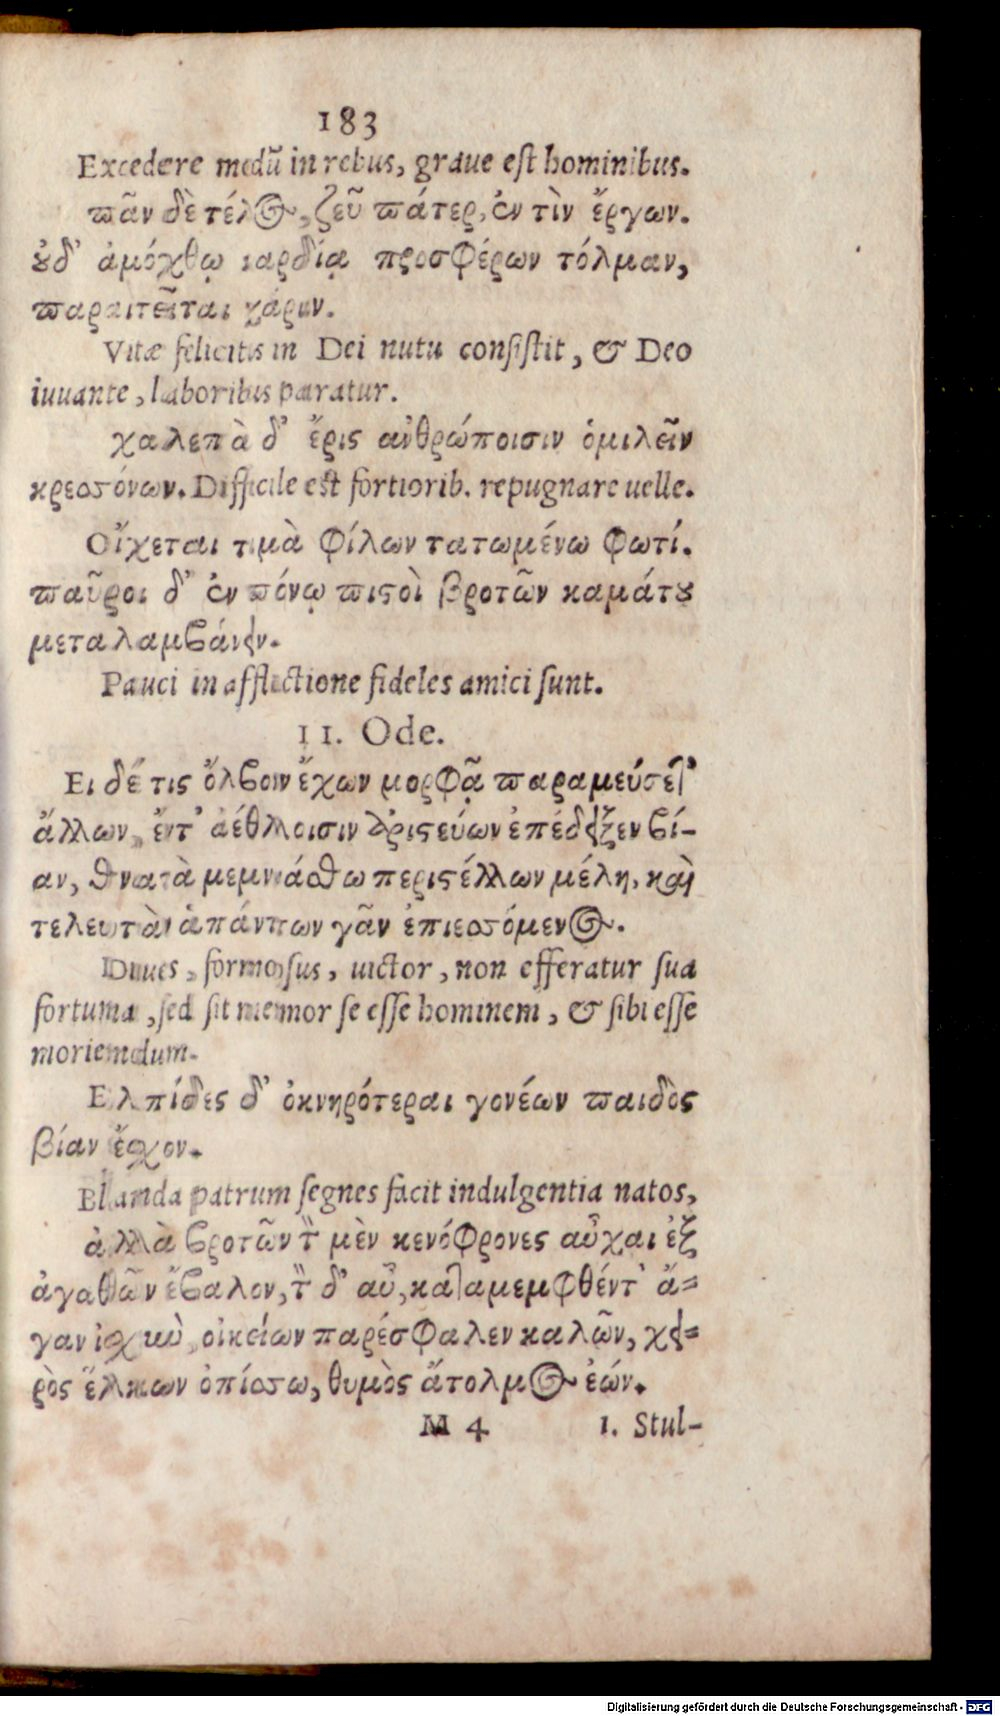 183
Excedere modũ in rebus, graue est hominibus.
πᾶν δὲ τέλος, ζεῦ πάτερ, ἐν τὶν ἔργων.
οὐδ' ἀμόχθῳ καρδίᾳ προσφέρων τόλμαν,
παραιτεῖται χάριν.
Vitæ felicitas in Dei nutu consistit, & Deo
iuuante, laboribus paratur.
χαλεπὰ δ' ἔρις ἀνθρώποισιν ὁμιλεῖν
κρεσσόνων. Difficile est fortiorib. repugnare uelle.
Οἴχεται τιμὰ φίλων τατωμένω φωτί.
παῦροι δ' ἐν πόνῳ πιστοὶ βροτῶν καμάτου
μεταλαμβάνειν.
Pauci in afflictione fideles amici sunt.
11. Ode.
Ει δέ τις ὄλβον ἔχων μορφᾷ παραμεύσετ'
ἄλλων, ἔντ' ἀέθλοισιν ἀριστεύων ἐπέδειξεν βί-
αν, θνατὰ μεμνάσθω περιστέλλων μέλη, καὶ
τελευτὰν ἁπάντων γᾶν ἐπιεσσόμενος.
Diues, formosus, uictor, non efferatur sua
fortuna, sed sit memor se esse hominem, & sibi esse
moriendum.
Ελπίδες δ' ὀκνηρότεραι γονέων παιδὸς
βίαν ἔσχον.
Blanda patrum segnes facit indulgentia natos,
ἀλλὰ βροτῶν τ̃ μὲν κενόφρονες αὖχαι ἐξ
ἀγαθῶν ἔβαλον, τ̃ δ' αὖ, καταμεμφθέντ' ἄ-
γαν ἰσχιὺ, οἰκείων παρέσφαλεν καλῶν, χει-
ρὸς ἕλκων ὀπίσσω, θυμὸς ἄτολμος ἐών.
M 4 1. Stul-
Digitalisierung gefördert durch die Deutsche Forschungsgemeinschaft - DFG